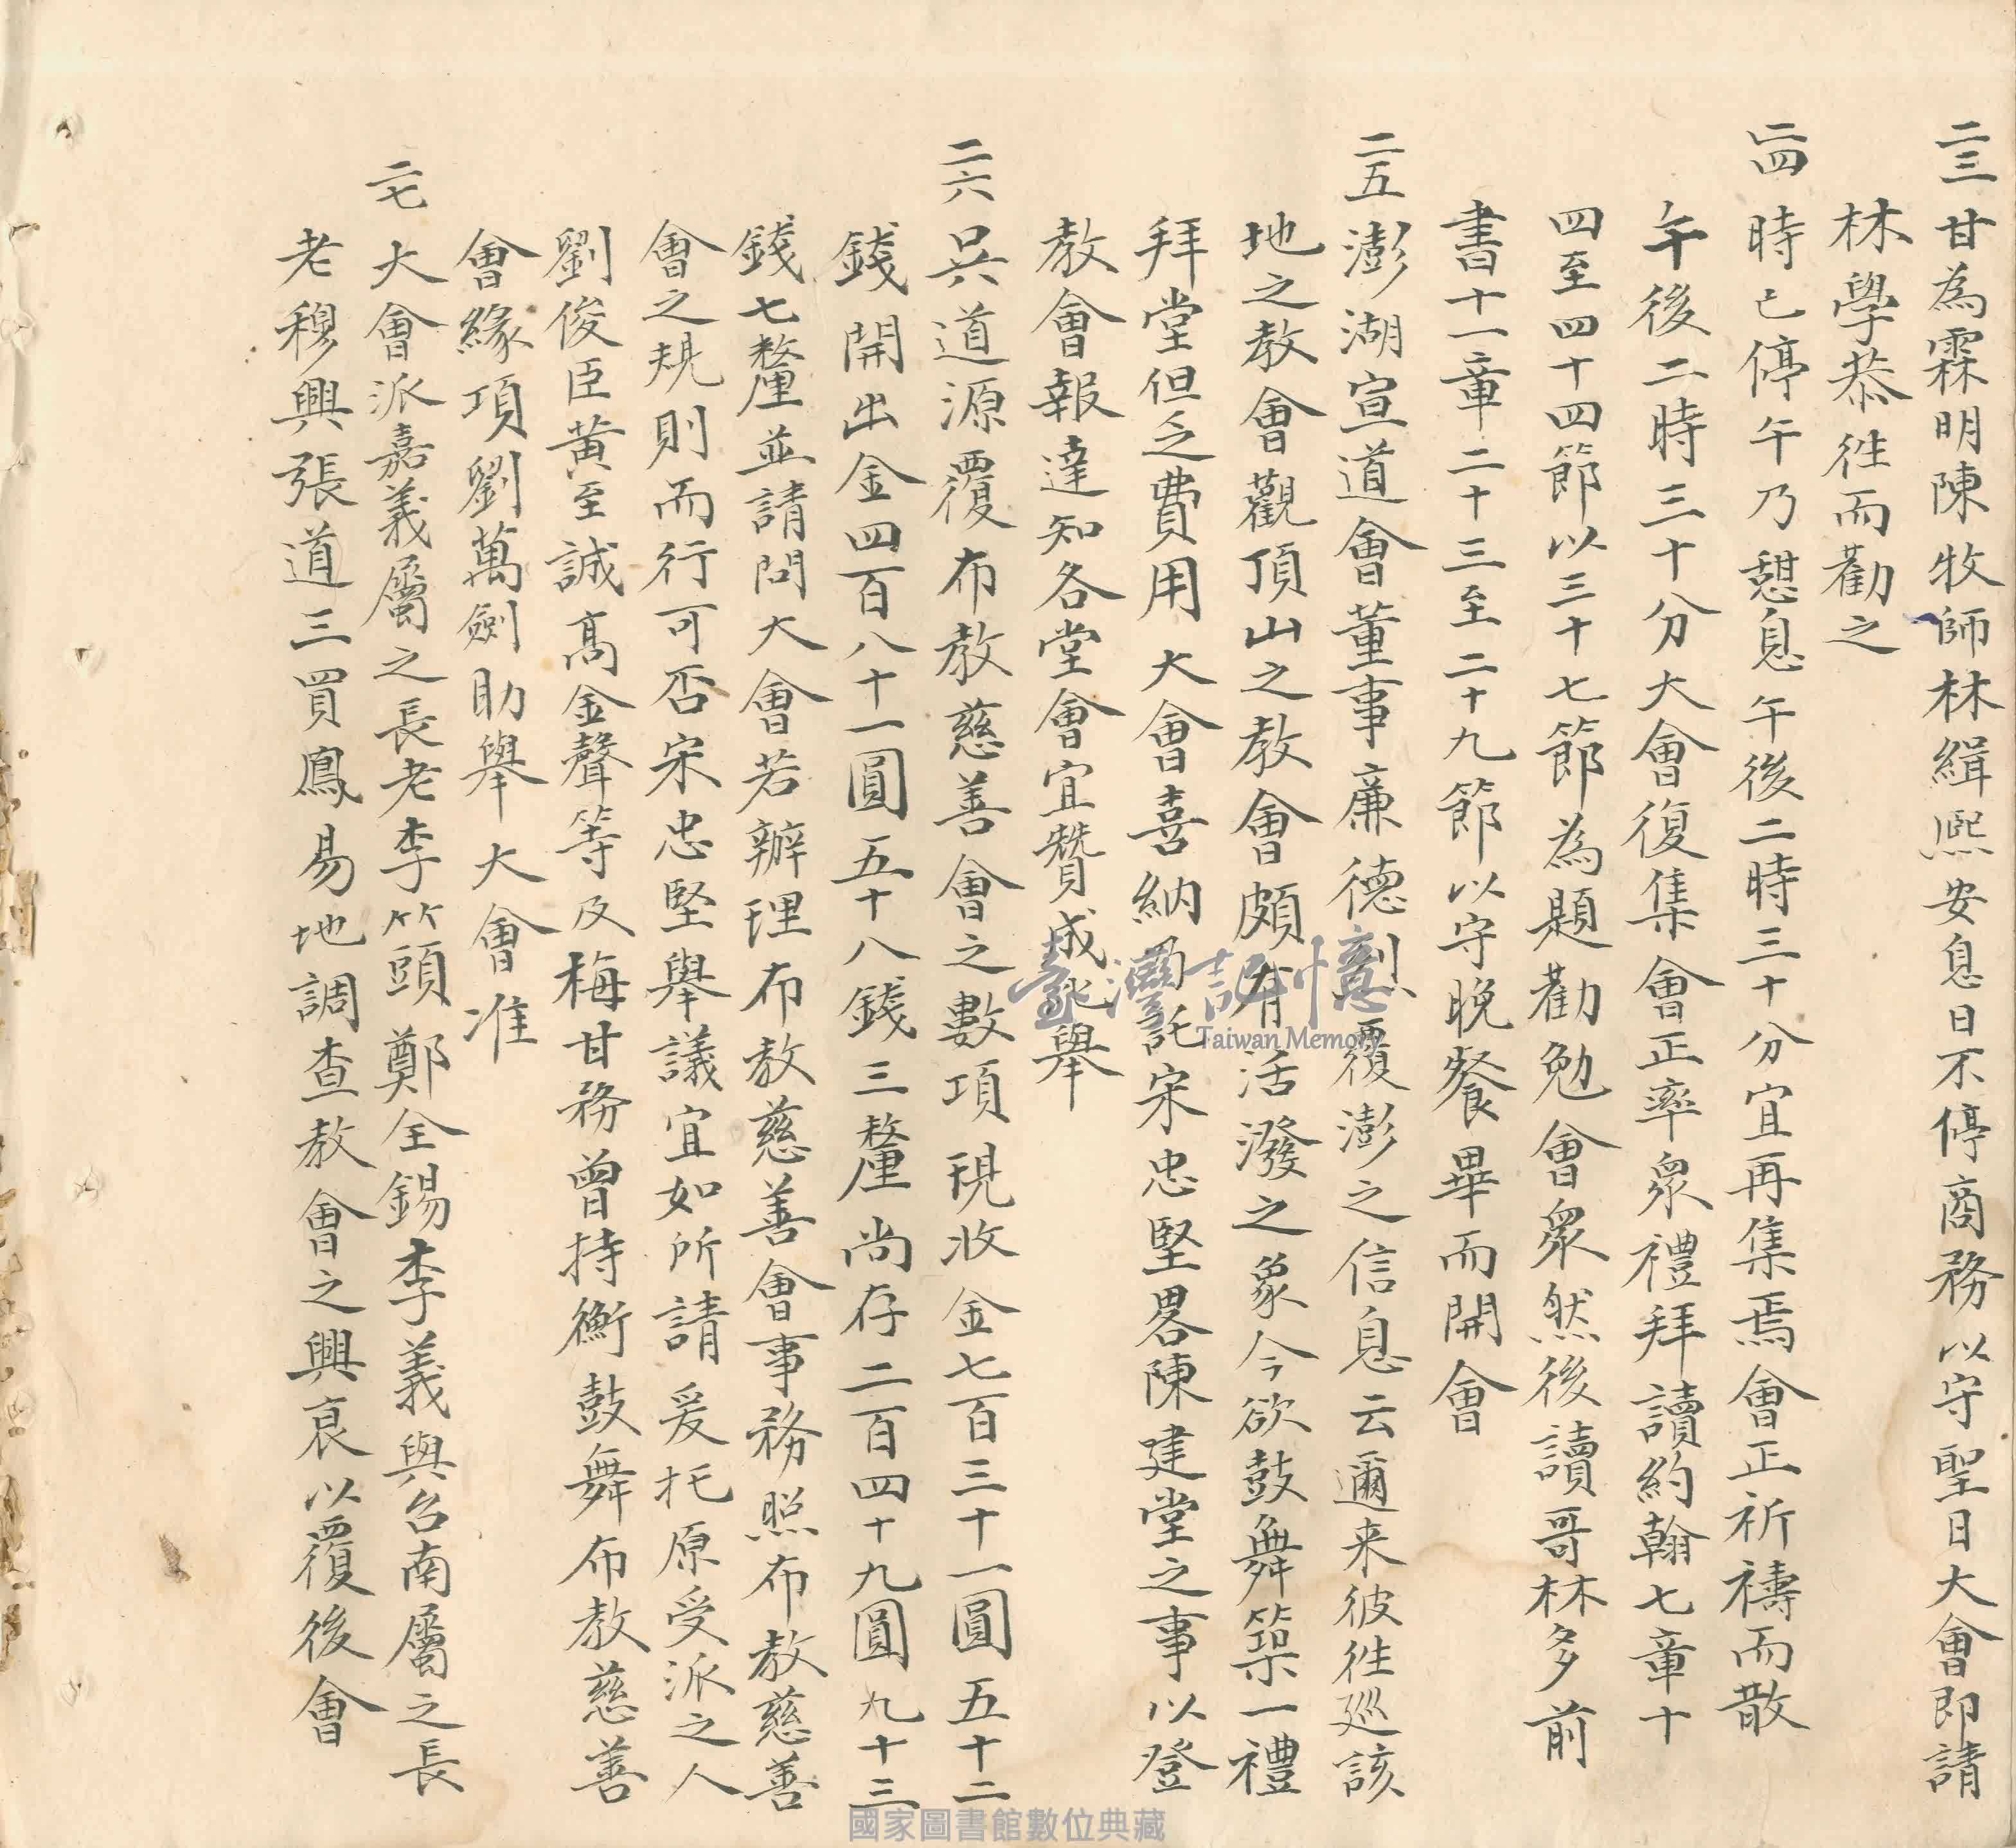 二三甘為霖明陳牧師林緝熙安息日不停商務以守聖日大會即請
林學恭往而勸之
二四時已停午乃憩息午後二時三十分宜再集焉會正祈禱而散
午後二時三十分大會復集會正率眾禮拜讀約翰七章十
四至四十四節以三十七節為題勸勉會眾然後讀哥林多前
書十一章二十三至二十九節以守晚餐畢而開會
二五澎湖宣道會董事廉德烈覆澎之信息云邇来彼往巡該
地之教會觀頂山之教會頗有活潑之象今欲鼓舞築一禮
拜堂但乏費用 大會喜納而託宋忠堅畧陳建堂之事以登
教會報達知各堂會宜贊成此舉
二六吳道源覆布教慈善會之數項現收金七百三十一圓五十二
錢開出金四百八十一圓五十八錢三釐尚存二百四十九圓九十三
錢七釐並請問大會若辦理布教慈善會事務照布教慈善
會之規則而行可否宋忠堅舉議宜如所請爰托原受派之人
劉俊臣黃至誠高金聲等及梅甘務曾持衡鼓舞布教慈善
會緣項劉萬劍助舉大會准
二七大會派嘉義屬之長老李竹頭鄭全錫李義與台南屬之長
老穆興張道三買鳳易地調查教會之興衰以覆後會
臺灣記憶
Taiwan Memory
國家圖書館數位典藏